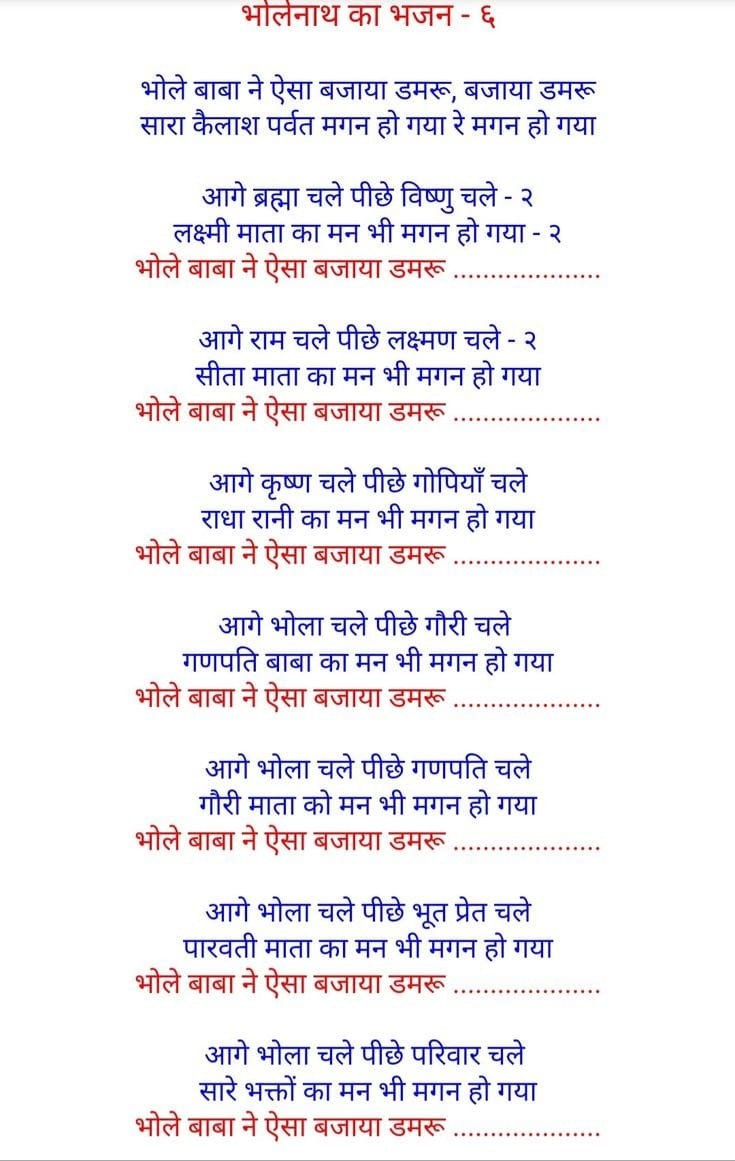 भोलेनाथ का भजन - ६
भोले बाबा ने ऐसा बजाया डमरू, बजाया डमरू
सारा कैलाश पर्वत मगन हो गया रे मगन हो गया
आगे ब्रह्मा चले पीछे विष्णु चले - २
लक्ष्मी माता का मन भी मगन हो गया - २
भोले बाबा ने ऐसा बजाया डमरू ....................
आगे राम चले पीछे लक्ष्मण चले - २
सीता माता का मन भी मगन हो गया
भोले बाबा ने ऐसा बजाया डमरू ....................
आगे कृष्ण चले पीछे गोपियाँ चले
राधा रानी का मन भी मगन हो गया
भोले बाबा ने ऐसा बजाया डमरू ....................
आगे भोला चले पीछे गौरी चले
गणपति बाबा का मन भी मगन हो गया
भोले बाबा ने ऐसा बजाया डमरू ....................
आगे भोला चले पीछे गणपति चले
गौरी माता को मन भी मगन हो गया
भोले बाबा ने ऐसा बजाया डमरू ....................
आगे भोला चले पीछे भूत प्रेत चले
पारवती माता का मन भी मगन हो गया
भोले बाबा ने ऐसा बजाया डमरू ....................
आगे भोला चले पीछे परिवार चले
सारे भक्तों का मन भी मगन हो गया
भोले बाबा ने ऐसा बजाया डमरू ....................